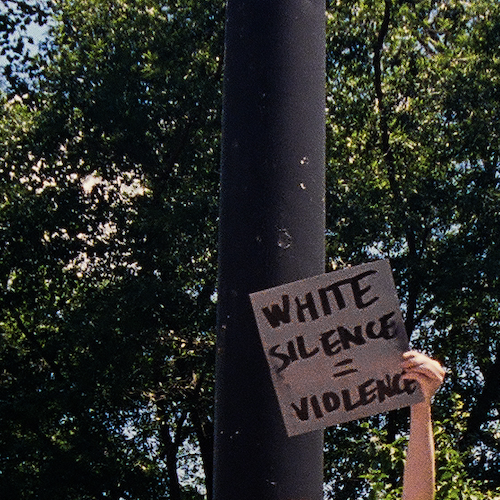 WHITE
SILENCE
=
VIOLENCE